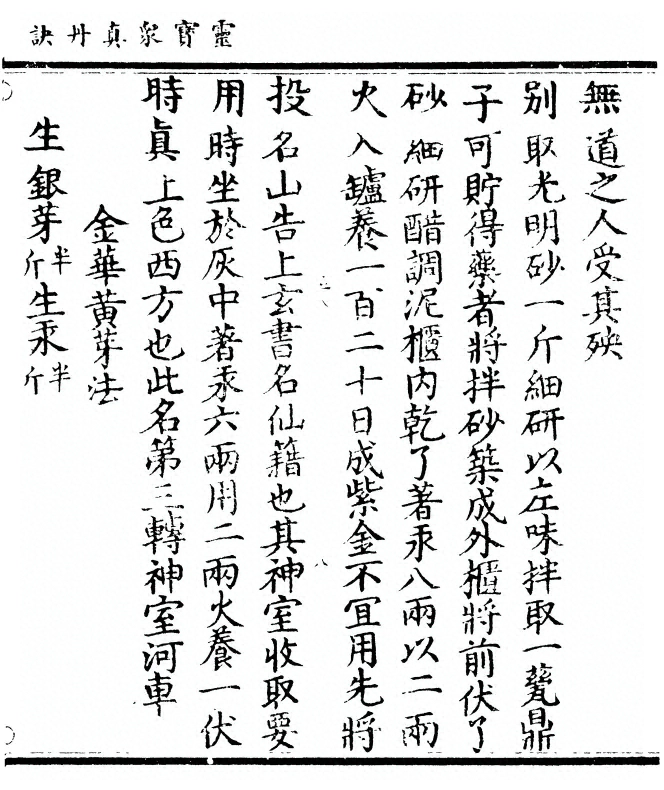 靈寶衆真丹訣
無道之人受其殃
別取光明砂一斤細研以左味拌取一甆鼎
子可貯得藥者將拌砂築成外櫃將前伏了
砂細研醋調泥櫃內乾了著汞八兩以二兩
火入鑪養一百二十日成紫金不宜用先將
投名山告上玄書名仙籍也其神室收取要
用時坐於灰中著汞六兩用二兩火養一伏
時眞上色西方也此名第三轉神室河車
金華黃芽法
生銀芽半斤生汞半斤